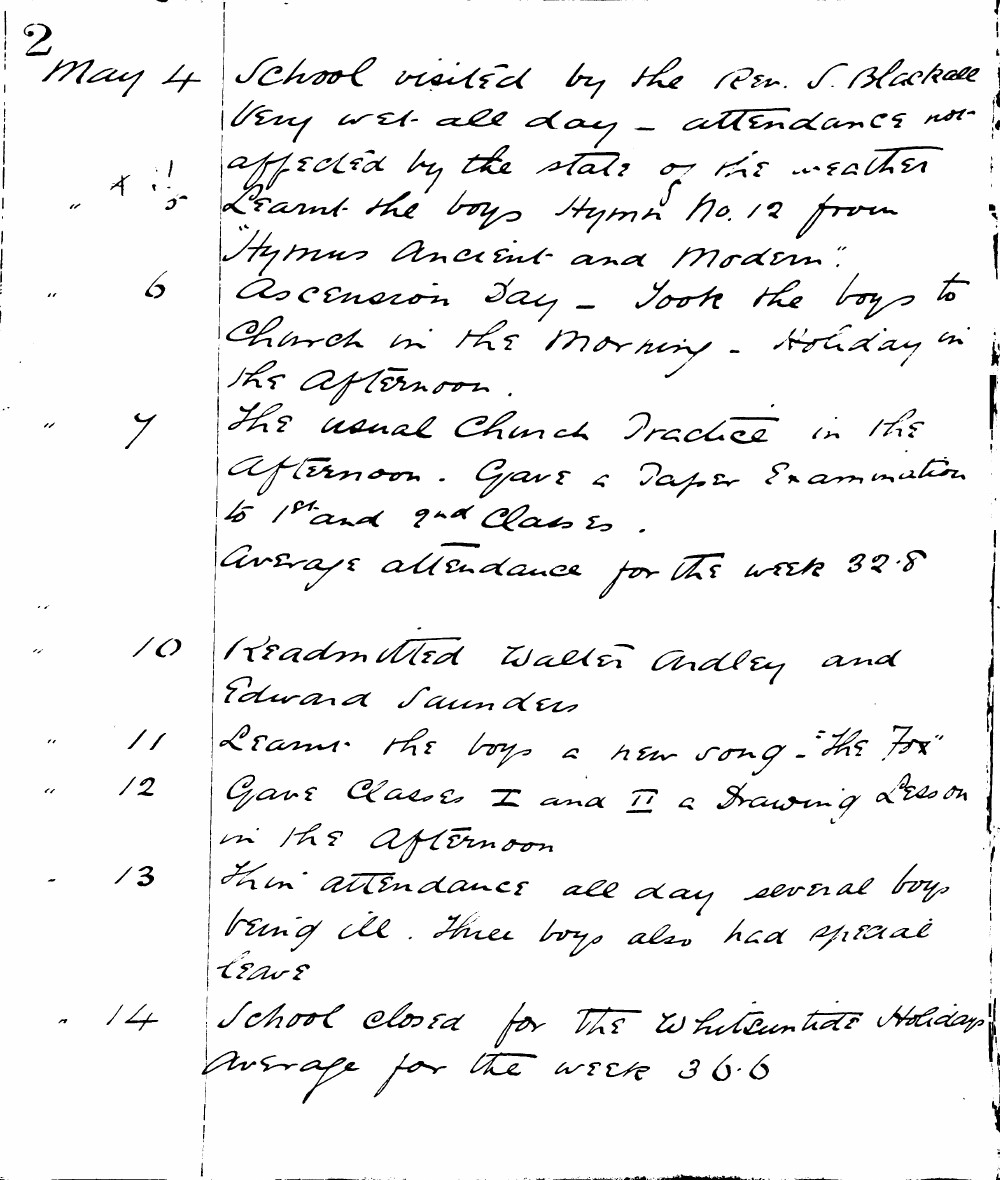 2
May 4 School visited by the Rev. S. Blackall
Very wet all day – attendance not
affected by the state of the weather
" 5 Learnt the boys Hymn No. 12 from
"Hymns Ancient and Modern".
" 6 Ascension Day – Took the boys to
Church in the Morning – Holiday in
the Afternoon.
" 7 The usual Church Practice in the
Afternoon. Gave a Paper Examination
to 1st and 2nd Classes.
Average attendance for the week 32.8
"
" 10 Readmitted Walter Ardley and
Edward Saunders
" 11 Learnt the boys a new song – "The Fox"
" 12 Gave Classes I and II a Drawing Lesson
in the Afternoon
" 13 Thin attendance all day several boys
being ill. Three boys also had special
leave
" 14 School closed for the Whitsuntide Holidays
Average for the week 36.6